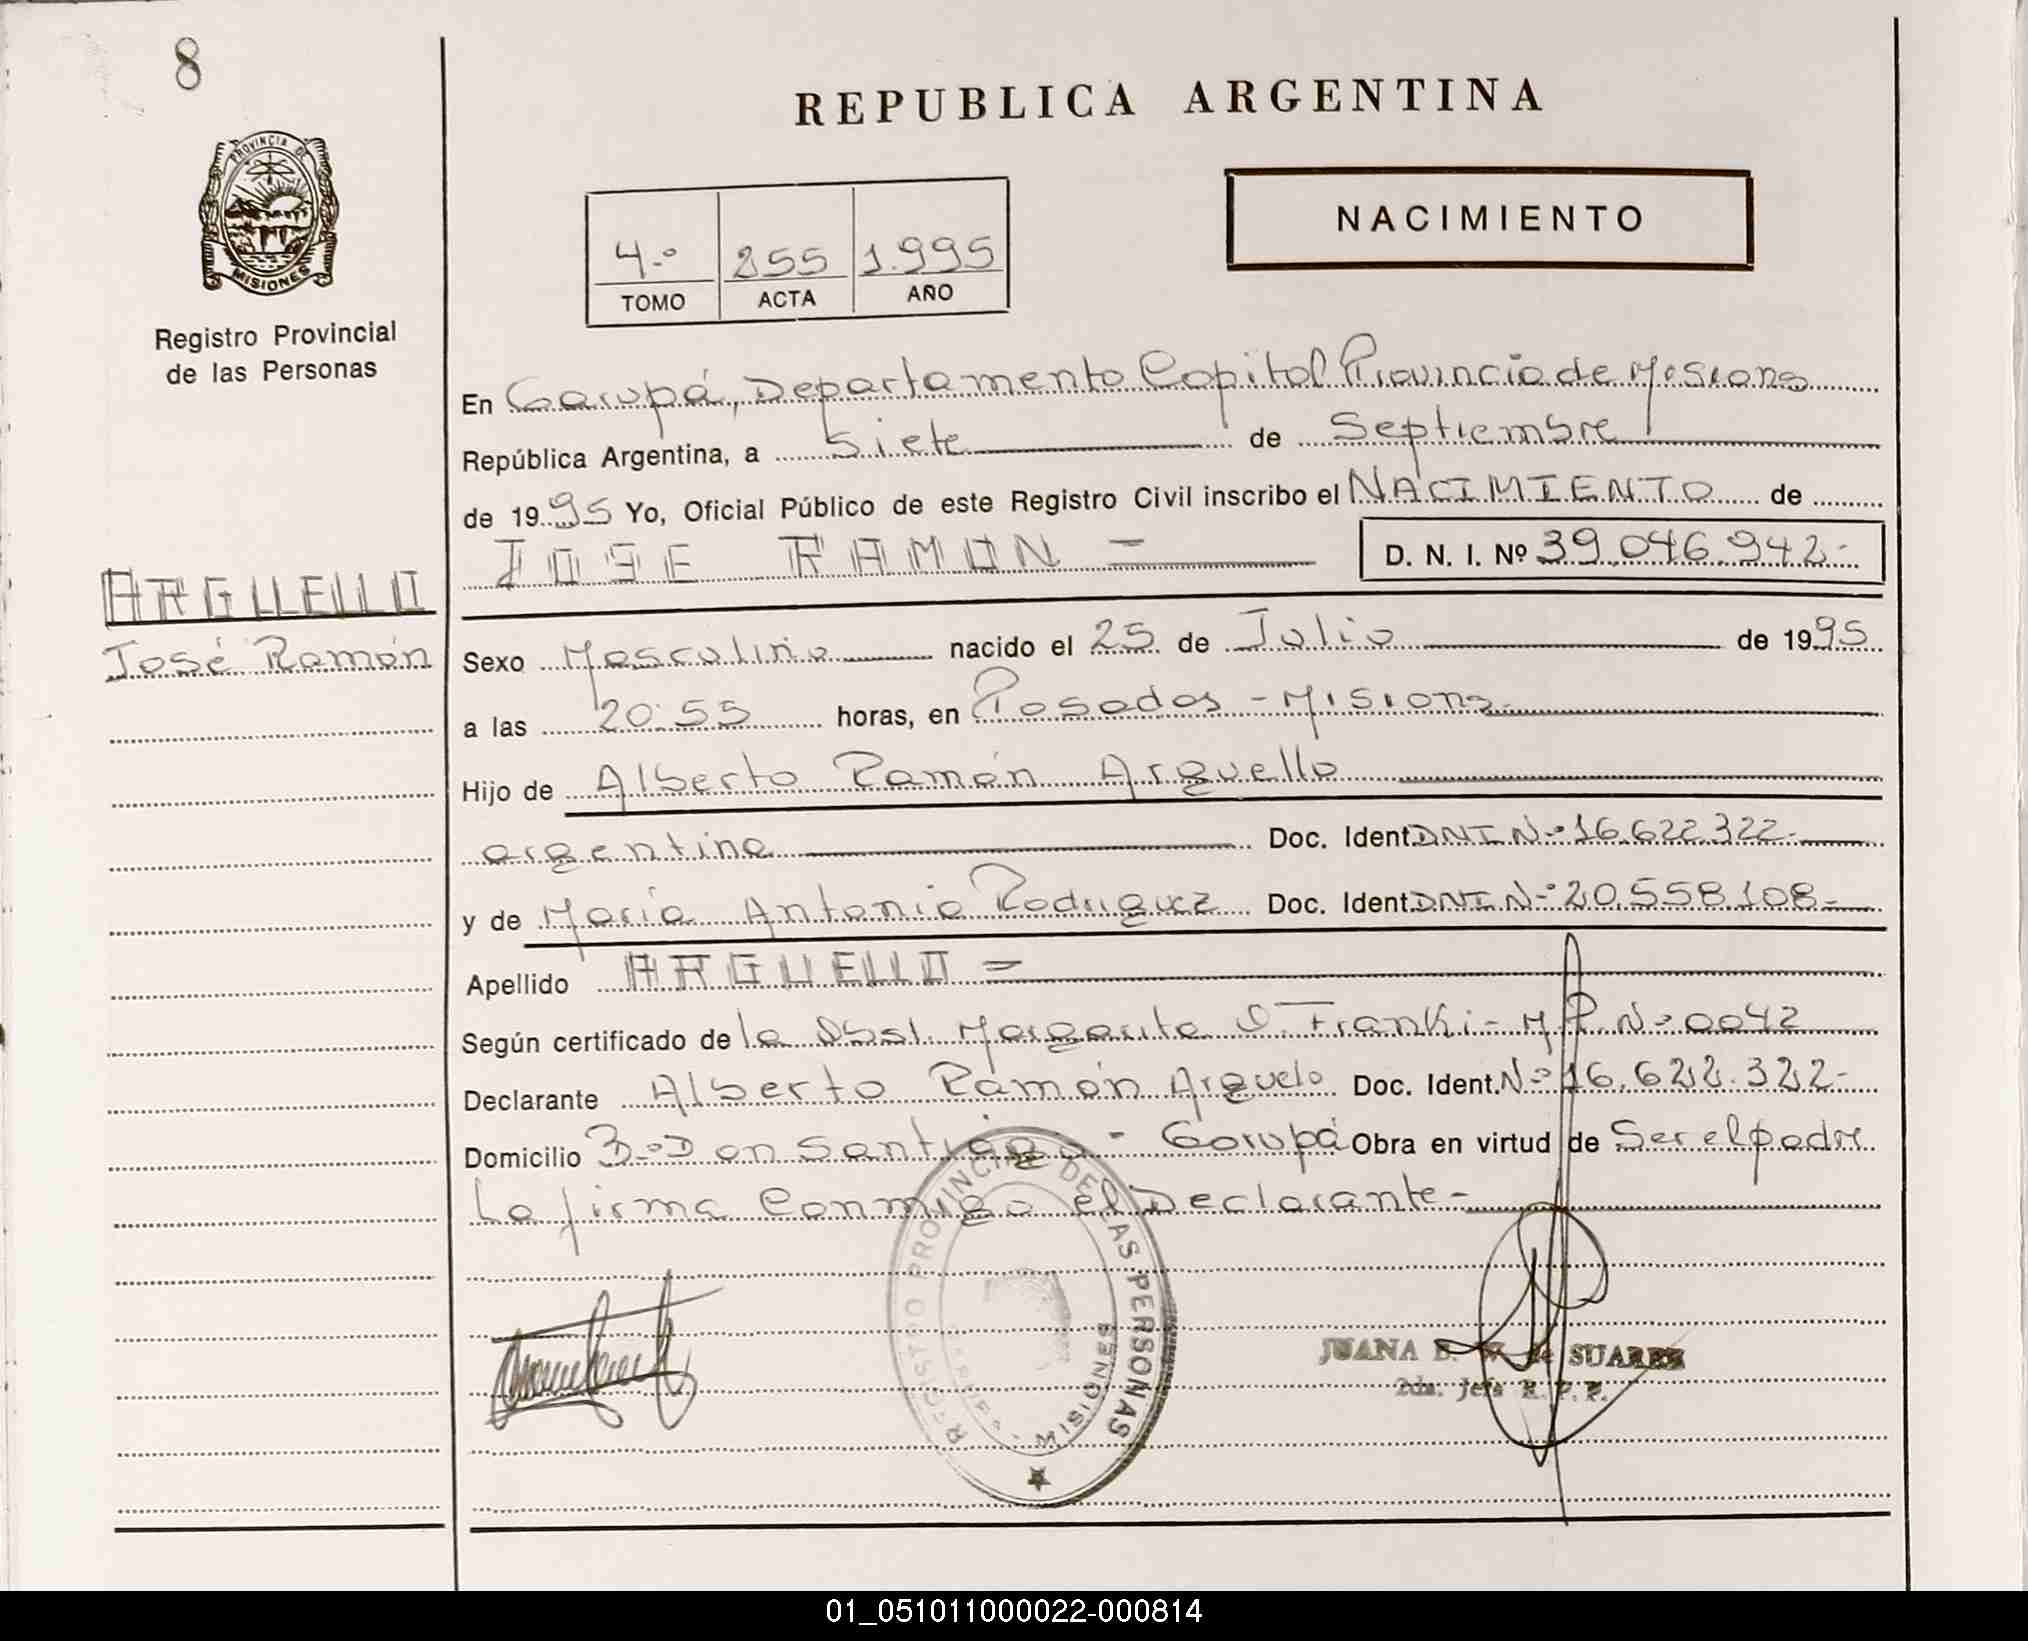 8
REPUBLICA ARGENTINA
PROVINCIA DE
MISIONES
Registro Provincial
de las Personas
NACIMIENTO
4.º 255 1.995
TOMO ACTA AÑO
En Garupá, Departamento Capital Provincia de Misiones
República Argentina, a siete de Septiembre
de 1995 Yo, Oficial Público de este Registro Civil inscribo el NACIMIENTO de
JOSE RAMON = D. N. I. Nº 39.046.942-
ARGUELLO
José Ramón
Sexo Masculino nacido el 25 de Julio de 1995
a las 20:55 horas, en Posadas - Misiones
Hijo de Alberto Ramón Arguello
argentina Doc. Ident. DNI Nº 16.622.322-
y de María Antonia Rodriguez Doc. Ident. DNI Nº 20.558.108-
Apellido ARGUELLO =
Según certificado de la Obst. Margarita S. Franki - M.P. Nº 0042
Declarante Alberto Ramón Arguelo Doc. Ident. Nº 16.622.322-
Domicilio Bº Don Santiago - Garupá Obra en virtud de Ser el padre
La firma Conmigo el Declarante -
REGISTRO PROVINCIAL DE LAS PERSONAS
MISIONES
JUANA de SUAREZ
2da. Jefe R. P. P.
01_051011000022-000814